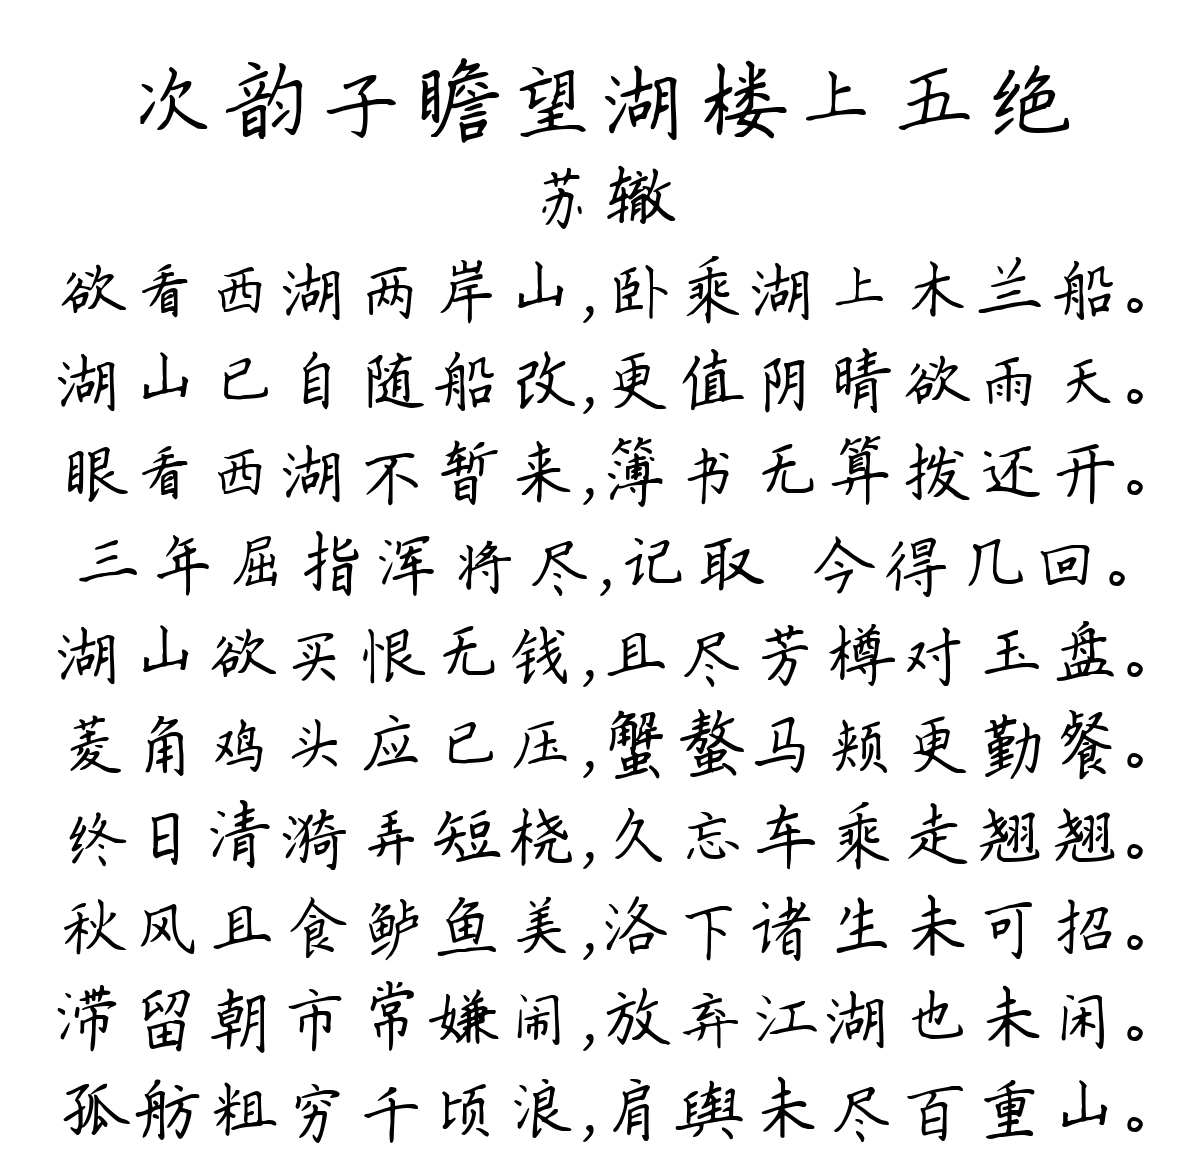 次韵子瞻望湖楼上五绝
苏辙
欲看西湖两岸山,卧乘湖上木兰船。
湖山已自随船改,更值阴晴欲雨天。
眼看西湖不暂来,簿书无算拨还开。
三年屈指浑将尽,记取 今得几回。
湖山欲买恨无钱,且尽芳樽对玉盘。
菱角鸡头应已压,蟹螯马颊更勤餐。
终日清漪弄短桡,久忘车乘走翘翘。
秋风且食鲈鱼美,洛下诸生未可招。
滞留朝市常嫌闹,放弃江湖也未闲。
孤舫粗穷千顷浪,肩舆未尽百重山。